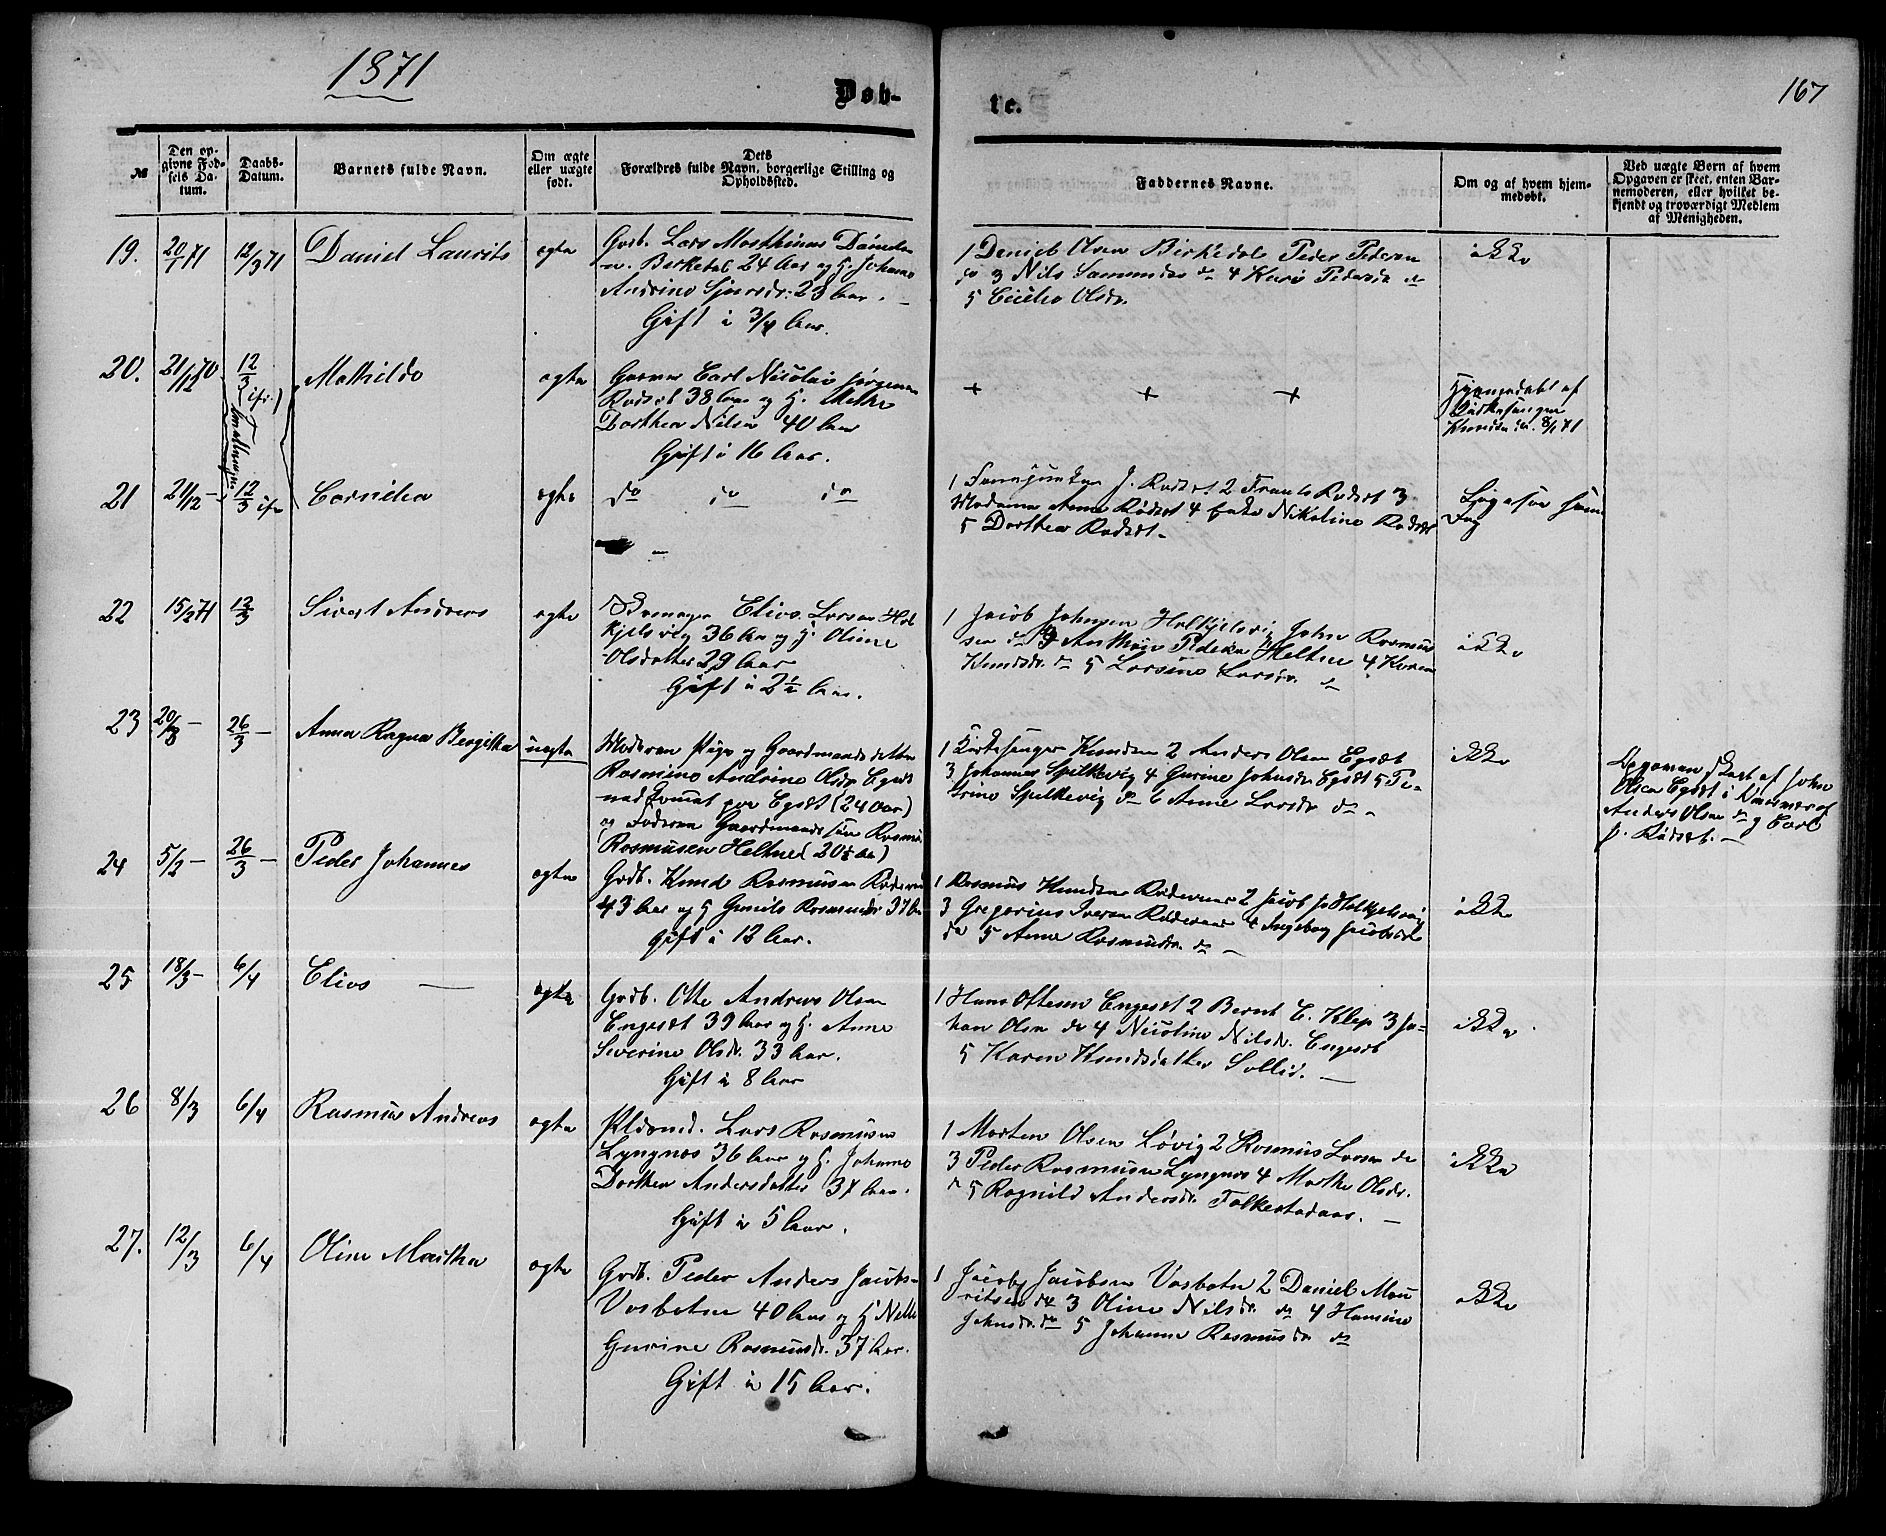 1871
167
Døb-
te.
№
Den op-
givne Fød-
sels Da-
tum.
Daabs-
Datum.
Barnets fulde Navn.
Om ægte
eller uægte
født.
Dets
Forældres fulde Navn, borgerlige Stilling og
Opholdssted.
Faddernes Navne.
Om og af hvem hjem-
medøbt.
Ved uægte Børn af hvem
Opgaven er skeet, enten Bar-
nemoderen, eller hvilket be-
kjendt og troværdigt Medlem
af Menigheden.
19.
20/1 71
12/3 71
Daniel Laurits
ægte
Gdb. Lars Mathias Daniels
Birkedal 24 Aar og H. Johanne
Andrine Sjursdr. 23 Aar. –
Gift i 3/4 Aar.
1 Daniel Olsen Birkedal Peder Pedersen
do 3 Nils Samundsen do 4 Karo Pedersdr do
5 Cecilia Olsdr.
ikke
20.
21/12 70
12/3
Mathilde
ægte
Carl Nicolai Jørgensen
Rødset 38 Aar og H. Methe
Dorthea Nilsen 40 Aar
Gift i 16 Aar.
+ + +
Hjemmedøbt af
Kirkesanger
Knudsen 8/1 71
21
21/12 –
12/3
Cornelia
ægte
do do do
1 J. Rødset 2 Frants Rødset 3
Madame Anne Rødset 4 Enke Nikoline Rødset
5 Dorthea Rødset. –
Ligesaa samme
Dag
22
15/2 71
12/3
Sivert Andreas
ægte
Elias Larsen Hol-
kjelsvig 36 Aar og H. Oline
Olsdatter 29 Aar
Gift i 2½ Aar.
1 Jacob Johnsen Holkjelsvig John Rasmus
sen do 3 Anthon Pedersen Heltne 4 Karen
Knudsdr. do 5 Larsine Larsdr. do
ikke
23
20/3 –
26/3 –
Anna Ragna Bergitha
uægte
Moderen Pige og Gaardmandsdatter
Rasmine Andrine Olsdr Egset
Egset (24 Aar)
og Faderen Gaardmandssøn Rasmus
Rasmusen Heltne (20½ Aar)
1 Kirkesanger Knudsen 2 Anders Olsen Egset
3 Johannes Spilkevig 4 Gurine Johnsdr Egset 5 Pe-
trine Spilkevig do 6 Anne Larsdr do –
ikke
Opgaven skeet af John
Olsen Egset i Nærvær af
Anders Olsen do og Carl
J. Rødset. –
24
5/2 –
26/3 –
Peder Johannes
ægte
Gdb. Knud Rasmusen
43 Aar og H Gunild Rasmusdr 37 Aar
gift i 12 Aar.
1 Rasmus Knudsen 2 Jacob J. Holkjelsvig
3 Gregorius Iversen 4 Ingeborg Jacobsdr
do 5 Anne Rasmusdr. do –
ikke
25
18/3 –
6/4
Elias –
ægte
Gdb. Otte Andreas Olsen
Engeset 39 Aar og H. Anne
Severine Olsdr. 33 Aar.
Gift i 8 Aar
1 Hans Ottesen Engeset 2 Bernt E. Klep 3 Jo-
han Olsen do 4 Nicoline Nilsdr. Engeset
5 Karen Knudsdatter Sollid. –
ikke
26
8/3
6/4
Rasmus Andreas
ægte
Pldsmd. Lars Rasmusen
Lyngnæs 36 Aar og H. Johanne
Dorthea Andersdatter 31 Aar.
Gift i 5 Aar.
1 Morten Olsen Løvig 2 Rasmus Larsen do
3 Peder Rasmusen Lyngnæs 4 Marthe Olsdr.
do 5 Ragnild Andersdr. Folkestadaas. –
ikke
27.
12/3
6/4
Oline Martha
ægte
Gdb. Peder Anders Jacobs-
Vasbotn 40 Aar og H Nelle
Gurine Rasmusdr. 37 Aar.
Gift i 15 Aar.
1 Jacob Jacobsen Vasbotn 2 Daniel Mau
ritsen do 3 Oline Nilsdr. do 4 Hansine
Johnsdr. do 5 Johanne Rasmusdr do
ikke